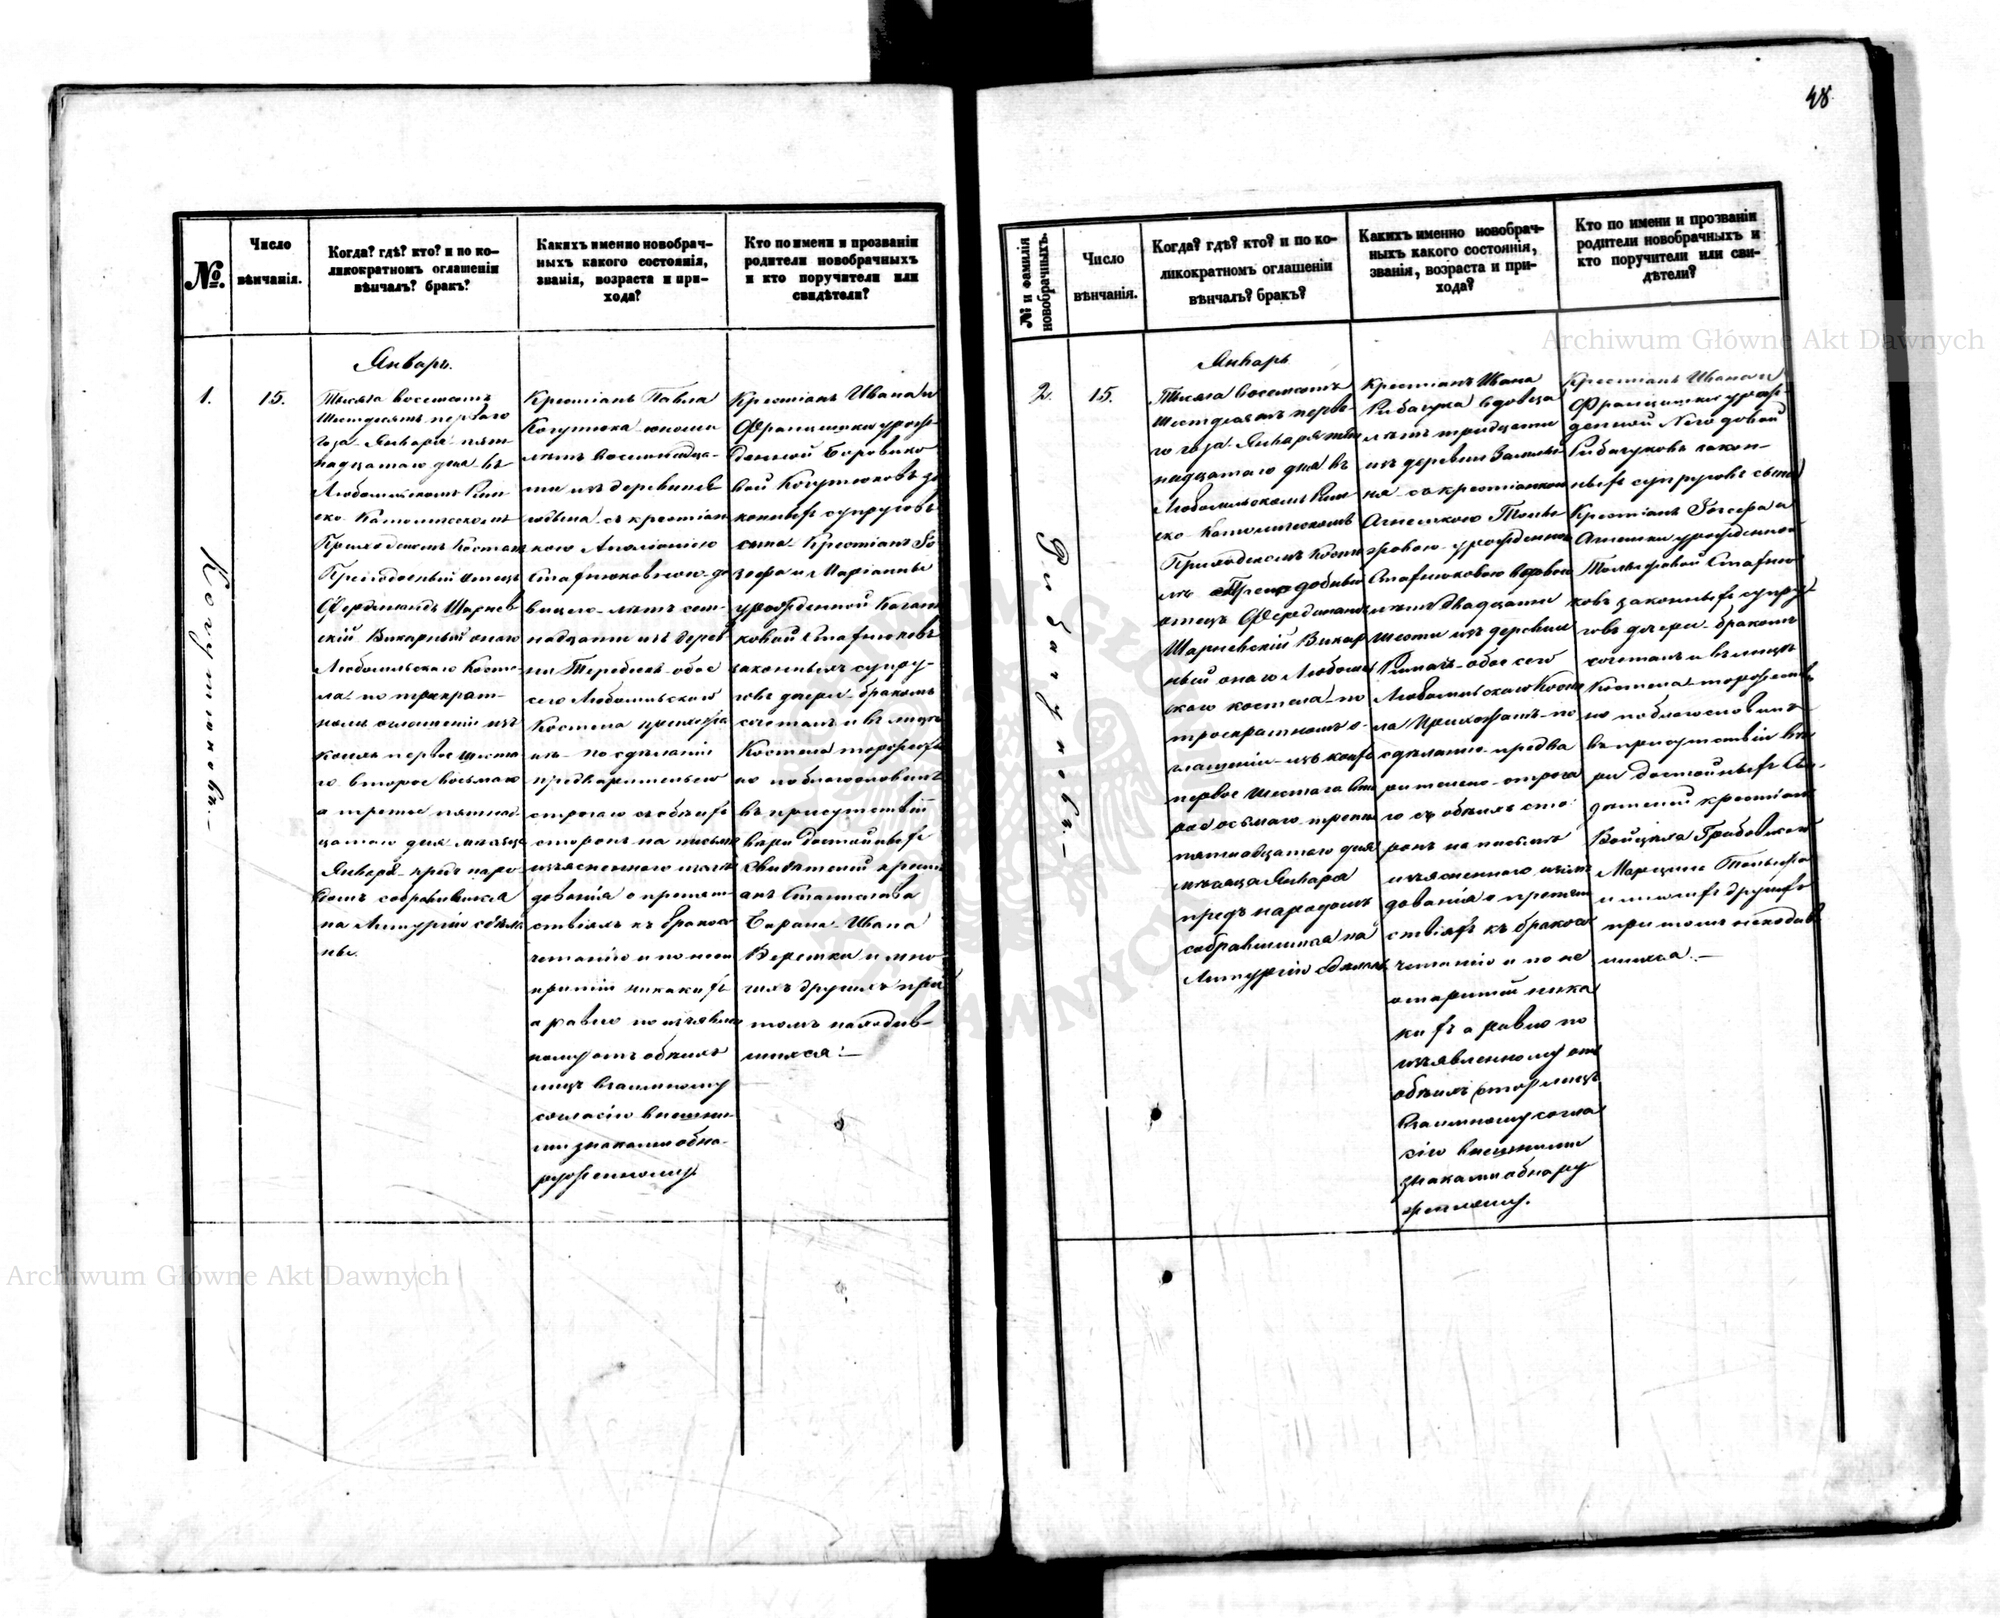 48
№.
Число
вѣнчанія.
Когда? гдѣ? кто? и по ко-
ликократномъ оглашеніи
вѣнчалъ? бракъ?
Какихъ именно новобрач-
ныхъ какого состоянія,
званія, возраста и при-
хода?
Кто по имени и прозваніи
родители новобрачныхъ
и кто поручители или
свидѣтели?
1.
15.
Когутюковъ.
Январь.
Тысяча восемсотъ
Шестдесятъ первого
года Января пят-
надцатаго дня въ
Любомльскомъ Рим
ско Католическомъ
Приходскомъ Костел
Преподобный отецъ
Фердинандъ Шарнев
скій Викарный онаго
Любомльскаго Косте
ла по трикрат-
номъ оглашеніи изъ
коихъ первое шеста
го второе восьмаго
а третье пятнад
цатаго дня месяца
Января предъ наро
домъ собравшимся
на Литургію сдѣла
ны.
Крестіанъ Павла
Когутюка юношу
лѣтъ восемнадца-
ти изъ деревни
съ крестіан
кою Аполіоніею
Стафнюковною до
вицею лѣтъ сем
надцати изъ дерев
ни Теребейъ обое
сего Любомльскаго
Костела прихожа
нъ по сдѣланіи
предварительно
строгаго съ обѣихъ
сторонъ на письмѣ
изъясненнаго изслѣ
дованія о препят
ствіяхъ къ бракосо
четанію и по неот
крытіи никакихъ
а равно по изъявлен
ному отъ обѣихъ
лицъ взаимному
согласію внешни
ми знаками обна-
руженному
Крестіанъ Ивана и
Францишки урож
денной Боровико
вой Когутюковъ за
конныхъ супруговъ
сына Крестіанъ Іо
зефа и Маріанны
урожденной Каган
ковой Стафнюковъ
законныхъ супру-
говъ дочери бракомъ
сочеталъ и въ лицѣ
Костела торжествен
но поблагословилъ
въ присутствіи
вѣры достойныхъ
Свидѣтелей крести
анъ Станислава
Барана Ивана
Верешка и мно
гихъ другихъ при
томъ находив-
шихся:—
№ и фамилія
новобрачныхъ.
Число
вѣнчанія.
Когда? гдѣ? кто? и по ко-
ликократномъ оглашеніи
вѣнчалъ? бракъ?
Какихъ именно новобрач-
ныхъ какого состоянія,
званія, возраста и при-
хода?
Кто по имени и прозваніи
родители новобрачныхъ и
кто поручители или сви-
дѣтели?
2.
15.
Рибачуковъ.—
Январь
Тысяча восемсотъ
Шестдесятъ перва
го года Января пят
надцатаго дня въ
Любомльскомъ Рим
ско Католическомъ
Приходскомъ Косте
лѣ Преподобный
отецъ Фердинандъ
Шарневскій Викар
ный онаго Любомль
скаго костела по
троекратномъ о-
глашеніи изъ коихъ
первое шестаго вто
рое осьмаго третье
пятнадцатаго дня
месяца Января
предъ народомъ
собравшимся на
Литургію сдѣланы
Крестіанъ Ивана
Рибачука вдовца
лѣтъ тридцати
изъ деревни
съ крестіанкою
Агнешкою
урожденною
Стафнюковою вдовою
лѣтъ двадцати
шести изъ деревни
Римачъ обое сего
Любомльскаго Косте
ла Прихожанъ по
сдѣланію предва
рительно строга
го съ обѣихъ сто
ронъ на письмѣ
изъясненнаго изслѣ
дованія о препят
ствіяхъ къ бракосо
четанію и по не
открытіи ника
кихъ а равно по
изъявленному отъ
обѣихъ сторъ лицъ
взаимному согла
сію внешними
знаками обнару
женному.
Крестіанъ Ивана и
Францишки урож
денной
Рибачуковъ закон-
ныхъ супруговъ сына
Крестіанъ Іосефа и
Агнешки урожденной
Стафню
ковъ законныхъ супру
говъ дочери бракомъ
сочеталъ и въ лицѣ
Костела торжествен
но поблагословилъ
въ присутствіи вѣ
ры достойныхъ Сви-
дѣтелей крестіанъ
Войцѣха Грабовскаго
Марцина
и многихъ другихъ
при томъ находив
шихся.—
Archiwum Główne Akt Dawnych
Archiwum Główne Akt Dawnych